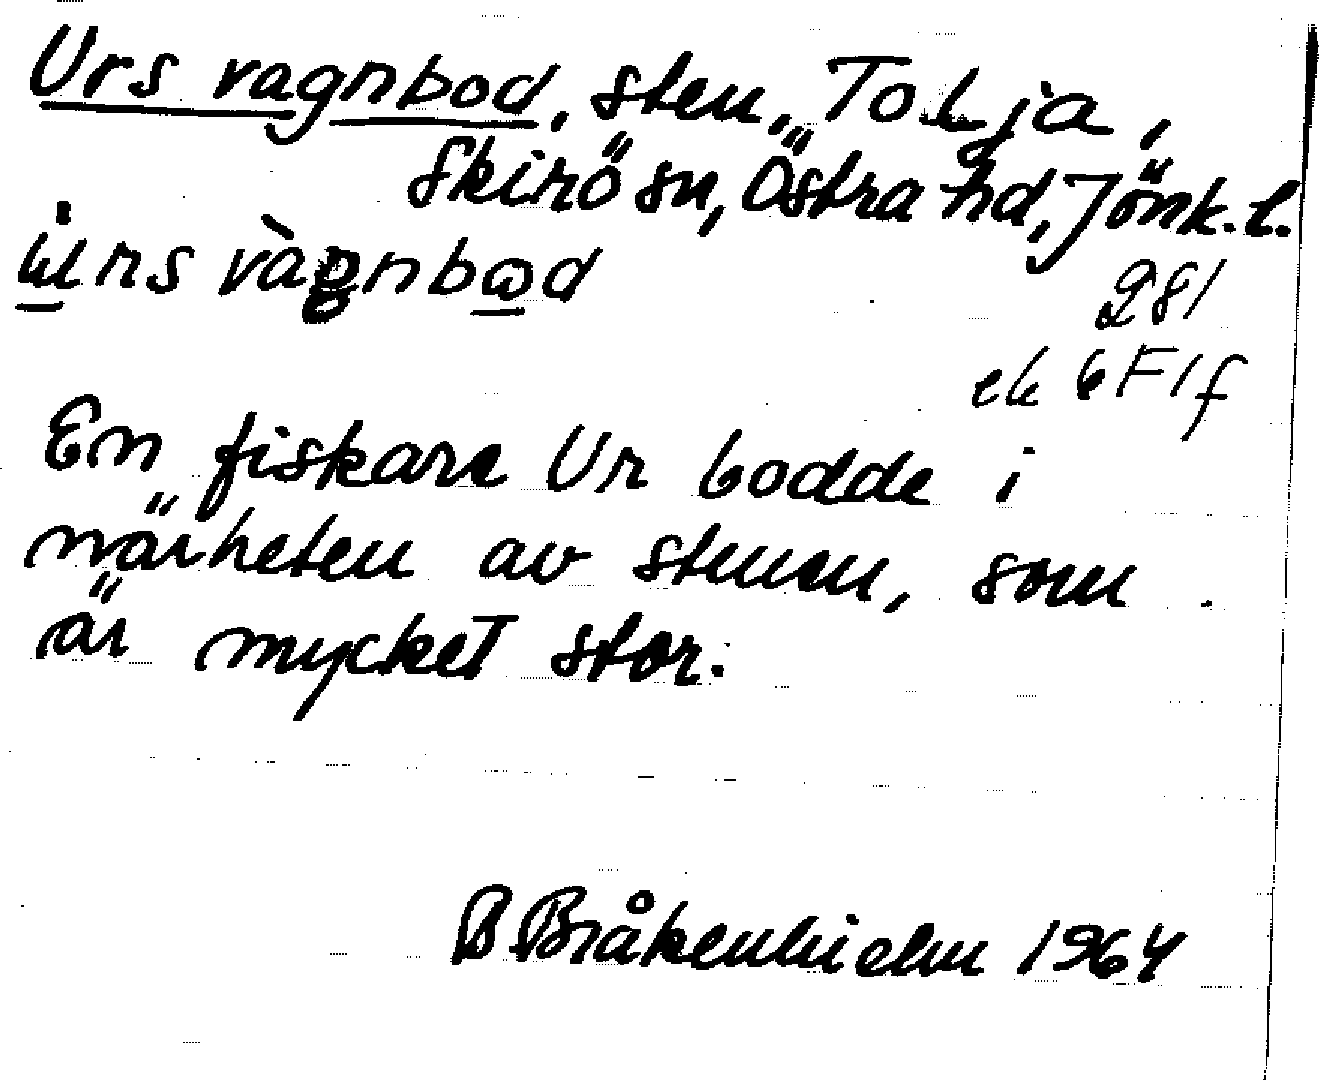 Urs vagnbod, sten, Tolja,
Skirö sn, Östra hd, Jönk. l.
u̇rs vàgnbωd
281
ek 6F1f
En fiskare Ur bodde i
närheten av stenen, som
är mycket stor.
B Bråkenhielm 1964